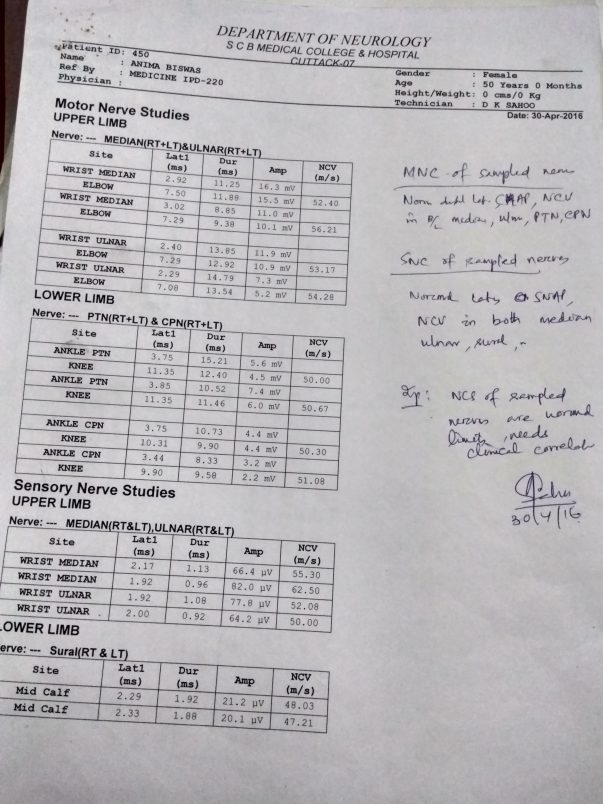 DEPARTMENT OF NEUROLOGY
S C B MEDICAL COLLEGE & HOSPITAL
CUTTACK-07
Patient ID: 450
Name : ANIMA BISWAS
Ref By : MEDICINE IPD-220
Physician :
Gender : Female
Age : 50 Years 0 Months
Height/Weight: 0 cms/0 Kg
Technician : D K SAHOO
Date: 30-Apr-2016
Motor Nerve Studies
UPPER LIMB
Nerve: --- MEDIAN(RT+LT)&ULNAR(RT+LT)
Site Lat1 (ms) Dur (ms) Amp NCV (m/s)
WRIST MEDIAN 2.92 11.25 16.3 mV
ELBOW 7.50 11.88 15.5 mV 52.40
WRIST MEDIAN 3.02 8.85 11.0 mV
ELBOW 7.29 9.38 10.1 mV 56.21
WRIST ULNAR 2.40 13.85 11.9 mV
ELBOW 7.29 12.92 10.9 mV 53.17
WRIST ULNAR 2.29 14.79 7.3 mV
ELBOW 7.08 13.54 5.2 mV 54.28
LOWER LIMB
Nerve: --- PTN(RT+LT) & CPN(RT+LT)
Site Lat1 (ms) Dur (ms) Amp NCV (m/s)
ANKLE PTN 3.75 15.21 5.6 mV
KNEE 11.35 12.40 4.5 mV 50.00
ANKLE PTN 3.85 10.52 7.4 mV
KNEE 11.35 11.46 6.0 mV 50.67
ANKLE CPN 3.75 10.73 4.4 mV
KNEE 10.31 9.90 4.4 mV 50.30
ANKLE CPN 3.44 8.33 3.2 mV
KNEE 9.90 9.58 2.2 mV 51.08
Sensory Nerve Studies
UPPER LIMB
Nerve: --- MEDIAN(RT&LT),ULNAR(RT&LT)
Site Lat1 (ms) Dur (ms) Amp NCV (m/s)
WRIST MEDIAN 2.17 1.13 66.4 µV 55.30
WRIST MEDIAN 1.92 0.96 82.0 µV 62.50
WRIST ULNAR 1.92 1.08 77.8 µV 52.08
WRIST ULNAR 2.00 0.92 64.2 µV 50.00
LOWER LIMB
erve: --- Sural(RT & LT)
Site Lat1 (ms) Dur (ms) Amp NCV (m/s)
Mid Calf 2.29 1.92 21.2 µV 48.03
Mid Calf 2.33 1.88 20.1 µV 47.21
MNC of sampled
lat. NCV
in B/L median, PTN, CPN
SNC of sampled nerves
Normal SNAP,
NCV in both median
ulnar, sural
Imp: NCS of sampled
nerves are normal
limits, needs
clinical correlation
30/4/16